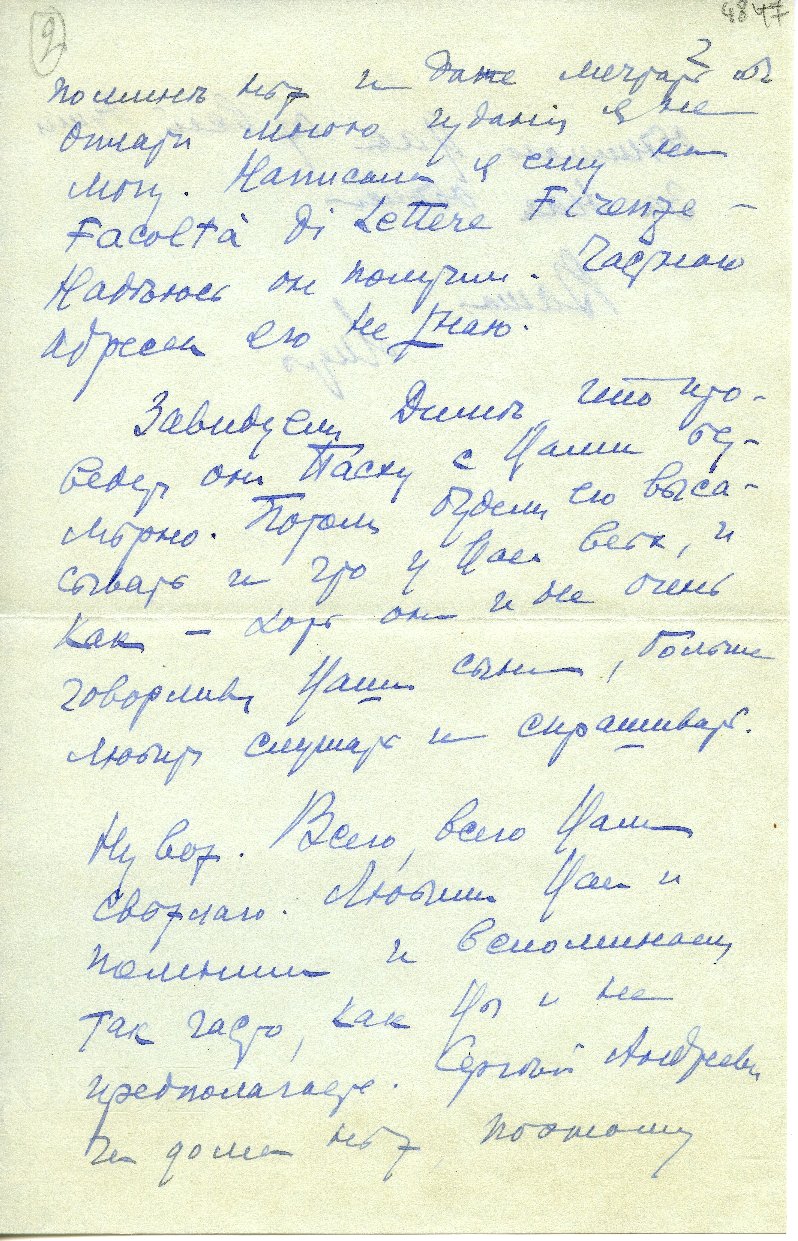 2
4847
2
помину нѣт и даже мечтать об
отпаде мною чудания я не
могу. Написала я ему на
Facoltà di Lettere Firenze –
Надѣюсь он получит. Частного
адреса его не знаю.
Завидуем Димѣ, что про-
ведет он Пасху с Вами бе-
мѣрно. Потом будем его высa-
сывать и что у Вас всѣ, и
как – хоть он и не очень
говорлив Ваш сын, больше
любит слушать и спрашивать.
Ну вот. Всего, всего Вам
свѣтлаго. Любим Вас и
помним и вспоминаем
так часто, как Вы и не
предполагаете. Сергѣй Андреевич
дома нѣт, поэтому